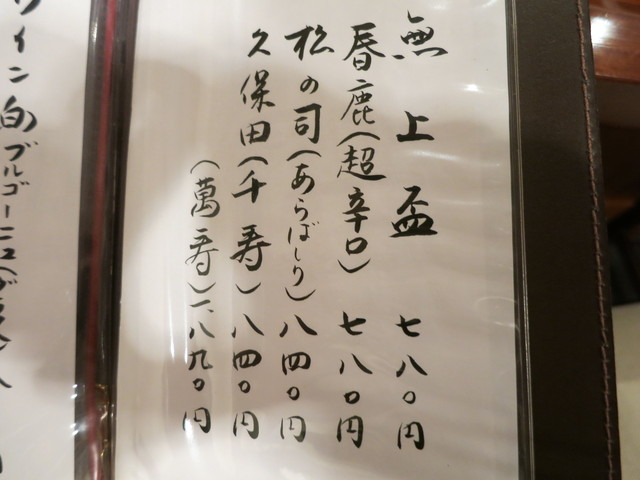 無上盃 七八〇円
春鹿(超辛口) 七八〇円
松の司(あらばしり) 八四〇円
久保田(千寿) 八四〇円
(萬寿) 一、八九〇円
イン 白 ブルゴーニュ